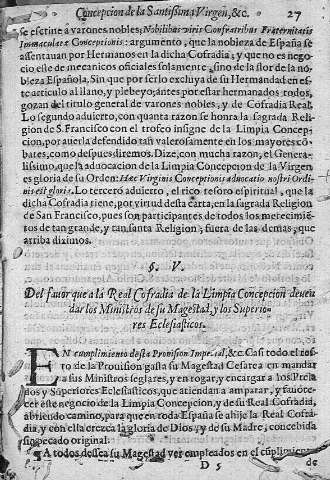 Concepcion de la Santissima Virgen, &c. 27
se escriue a varones nobles, Nobilibus viris Confratribus Fraternitatis
Immaculatæ Conceptionis: argumento, que la nobleza de España se
assentauan por Hermanos en la dicha Cofradia, y que no es nego-
cio este de mecanicos oficiales solamente, sino de la flor de la no-
bleza Española, Sin que por serlo excluya de su Hermandad en es-
te articulo al llano, y plebeyo, antes por estar hermanados todos,
gozan del titulo general de varones nobles, y de Cofradia Real.
Lo segundo aduierto, con quanta razon se honra la sagrada Reli-
gion de S. Francisco con el trofeo insigne de la Limpia Concep-
cion, por auerla defendido tan valerosamente en los mayores cõ-
bates, como despues diremos. Dize, con mucha razon, el Genera-
lissimo, que la aduocacion de la Limpia Concepcion de la Virgen
es gloria de su Orden: Hæc Virginis Conceptionis aduocatio nostri Ordi-
nis est gloria. Lo tercero aduierto, el rico tesoro espiritual, que la
dicha Cofradia tiene, por virtud desta carta, en la sagrada Religion
de San Francisco, pues son participantes de todos los merecimiẽ-
tos de tan grande, y tan santa Religion, fuera de las demas, que
arriba diximos.
§. V.
Del fauor que a la Real Cofradia de la Limpia Concepcion deuen
dar los Ministros de su Magestad, y los Superio-
res Eclesiasticos.
EN cumplimiento desta Prouision Imperial, &c. Casi todo el res-
to de la Prouision gasta su Magestad Cesarea en mandar
a sus Ministros seglares, y en rogar, y encargar a los Prela
dos y Superiores Eclesiasticos, que atiendan a amparar, y fauore-
cer este negocio de la Limpia Concepcion, y de su Real Cofradia,
abriendo camino, para que en toda España se ahije la Real Cofra-
dia, y con ella crezca la gloria de Dios, y de su Madre, concebida
sin pecado original.
¶ A todos dessea su Magestad ver empleados en el cũplimien-
D 5 de